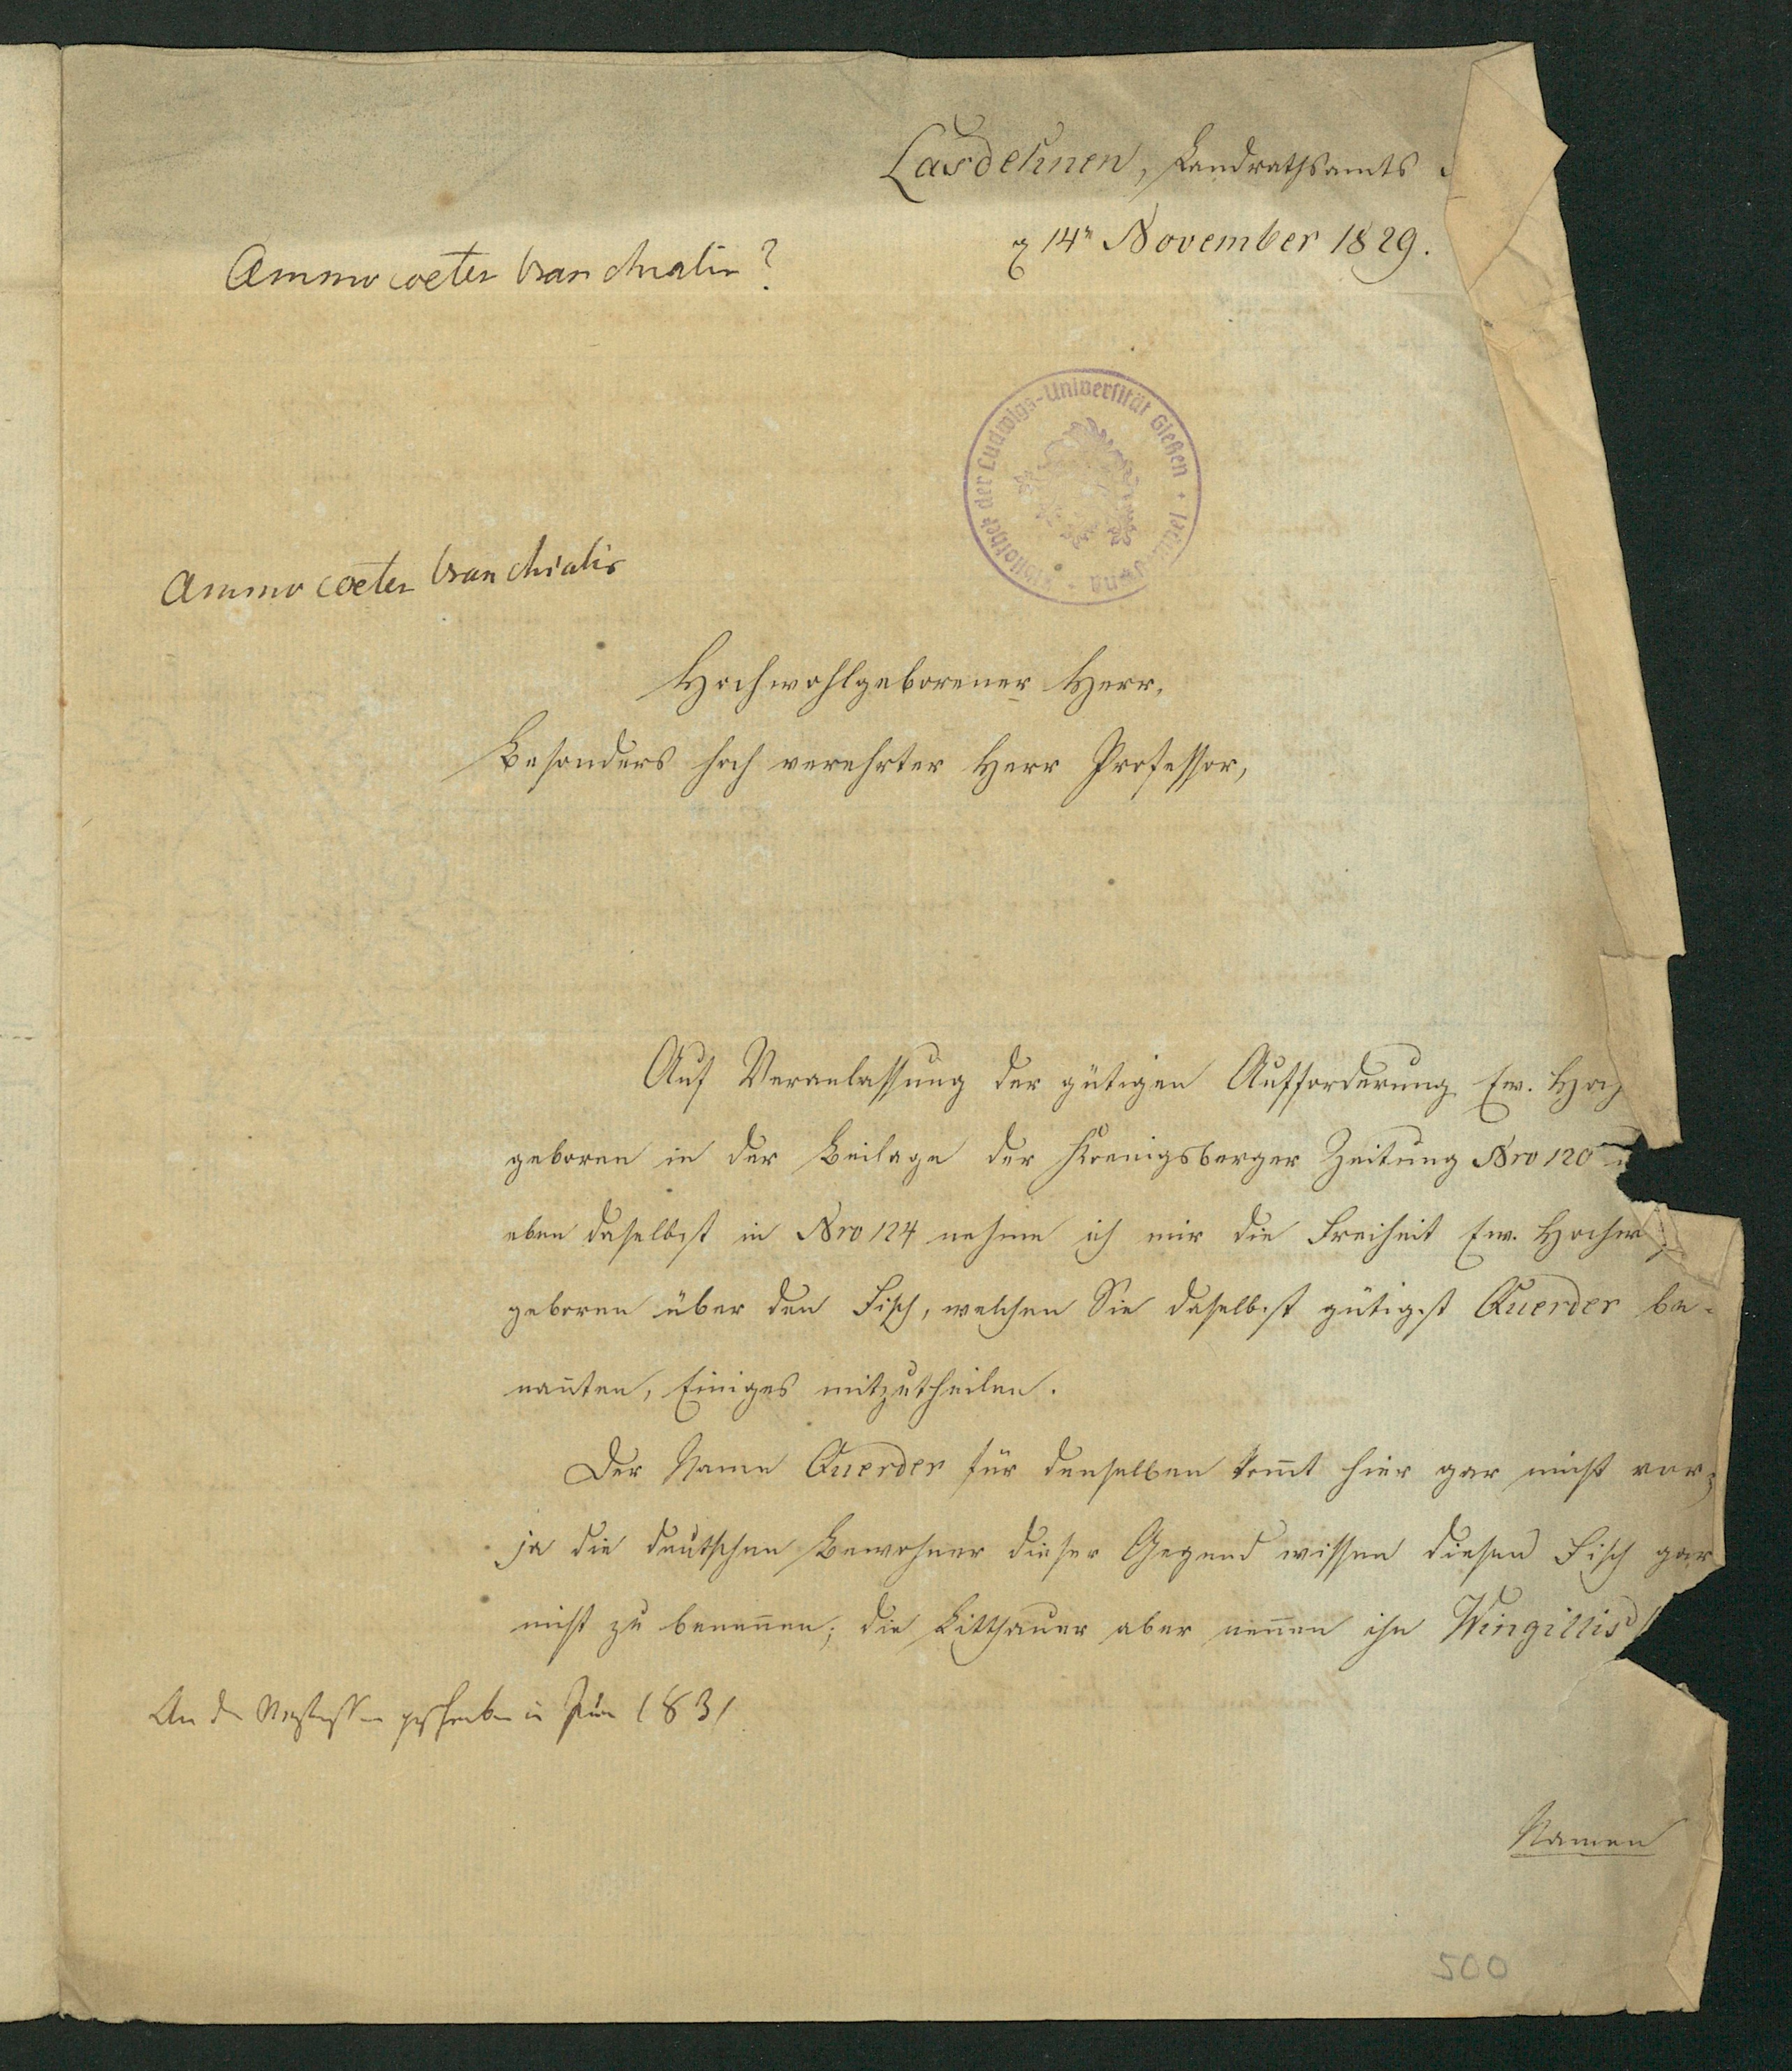 Lasdehnen, Landrathsamts
14n November 1829.
Ammocoetes branchialis?
Bibliothek der Ludwigs-Universität Gießen
Ammocoetes branchialis
Hochwohlgeborener Herr,
Besonders hoch verehrter Herr Professor,
Auf Veranlassung der gütigen Aufforderung Ew. Hoch
geboren in der Beilage der Koenigsberger Zeitung Nro 120
eben daselbst in Nro 124 nehme ich mir die Freiheit Ew. Hochw
geboren über den Fisch, welchen Sie daselbst gütigst Querder be-
nan̄ten, Einiges mitzutheilen.
Der Name Querder für denselben kom̄t hier gar nicht vor;
ja die deutschen Bewohner dieser Gegend wissen diesen Fisch gar
nicht zu benen̄en; die Litthauer aber nen̄en ihn Wingillis
An den Verfasser geschrieben in Jun 1831
Namen
500